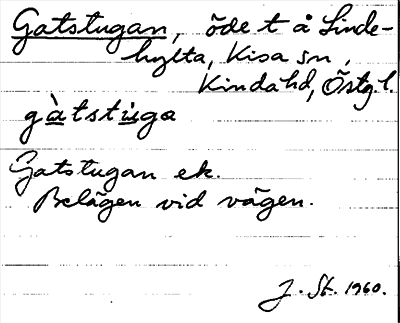 Gatstugan, öde t å Linde-
hylta, Kisa sn,
Kinda hd, Östg.l.
gàtstùga
Gatstugan ek.
Belägen vid vägen.
J. St. 1960.